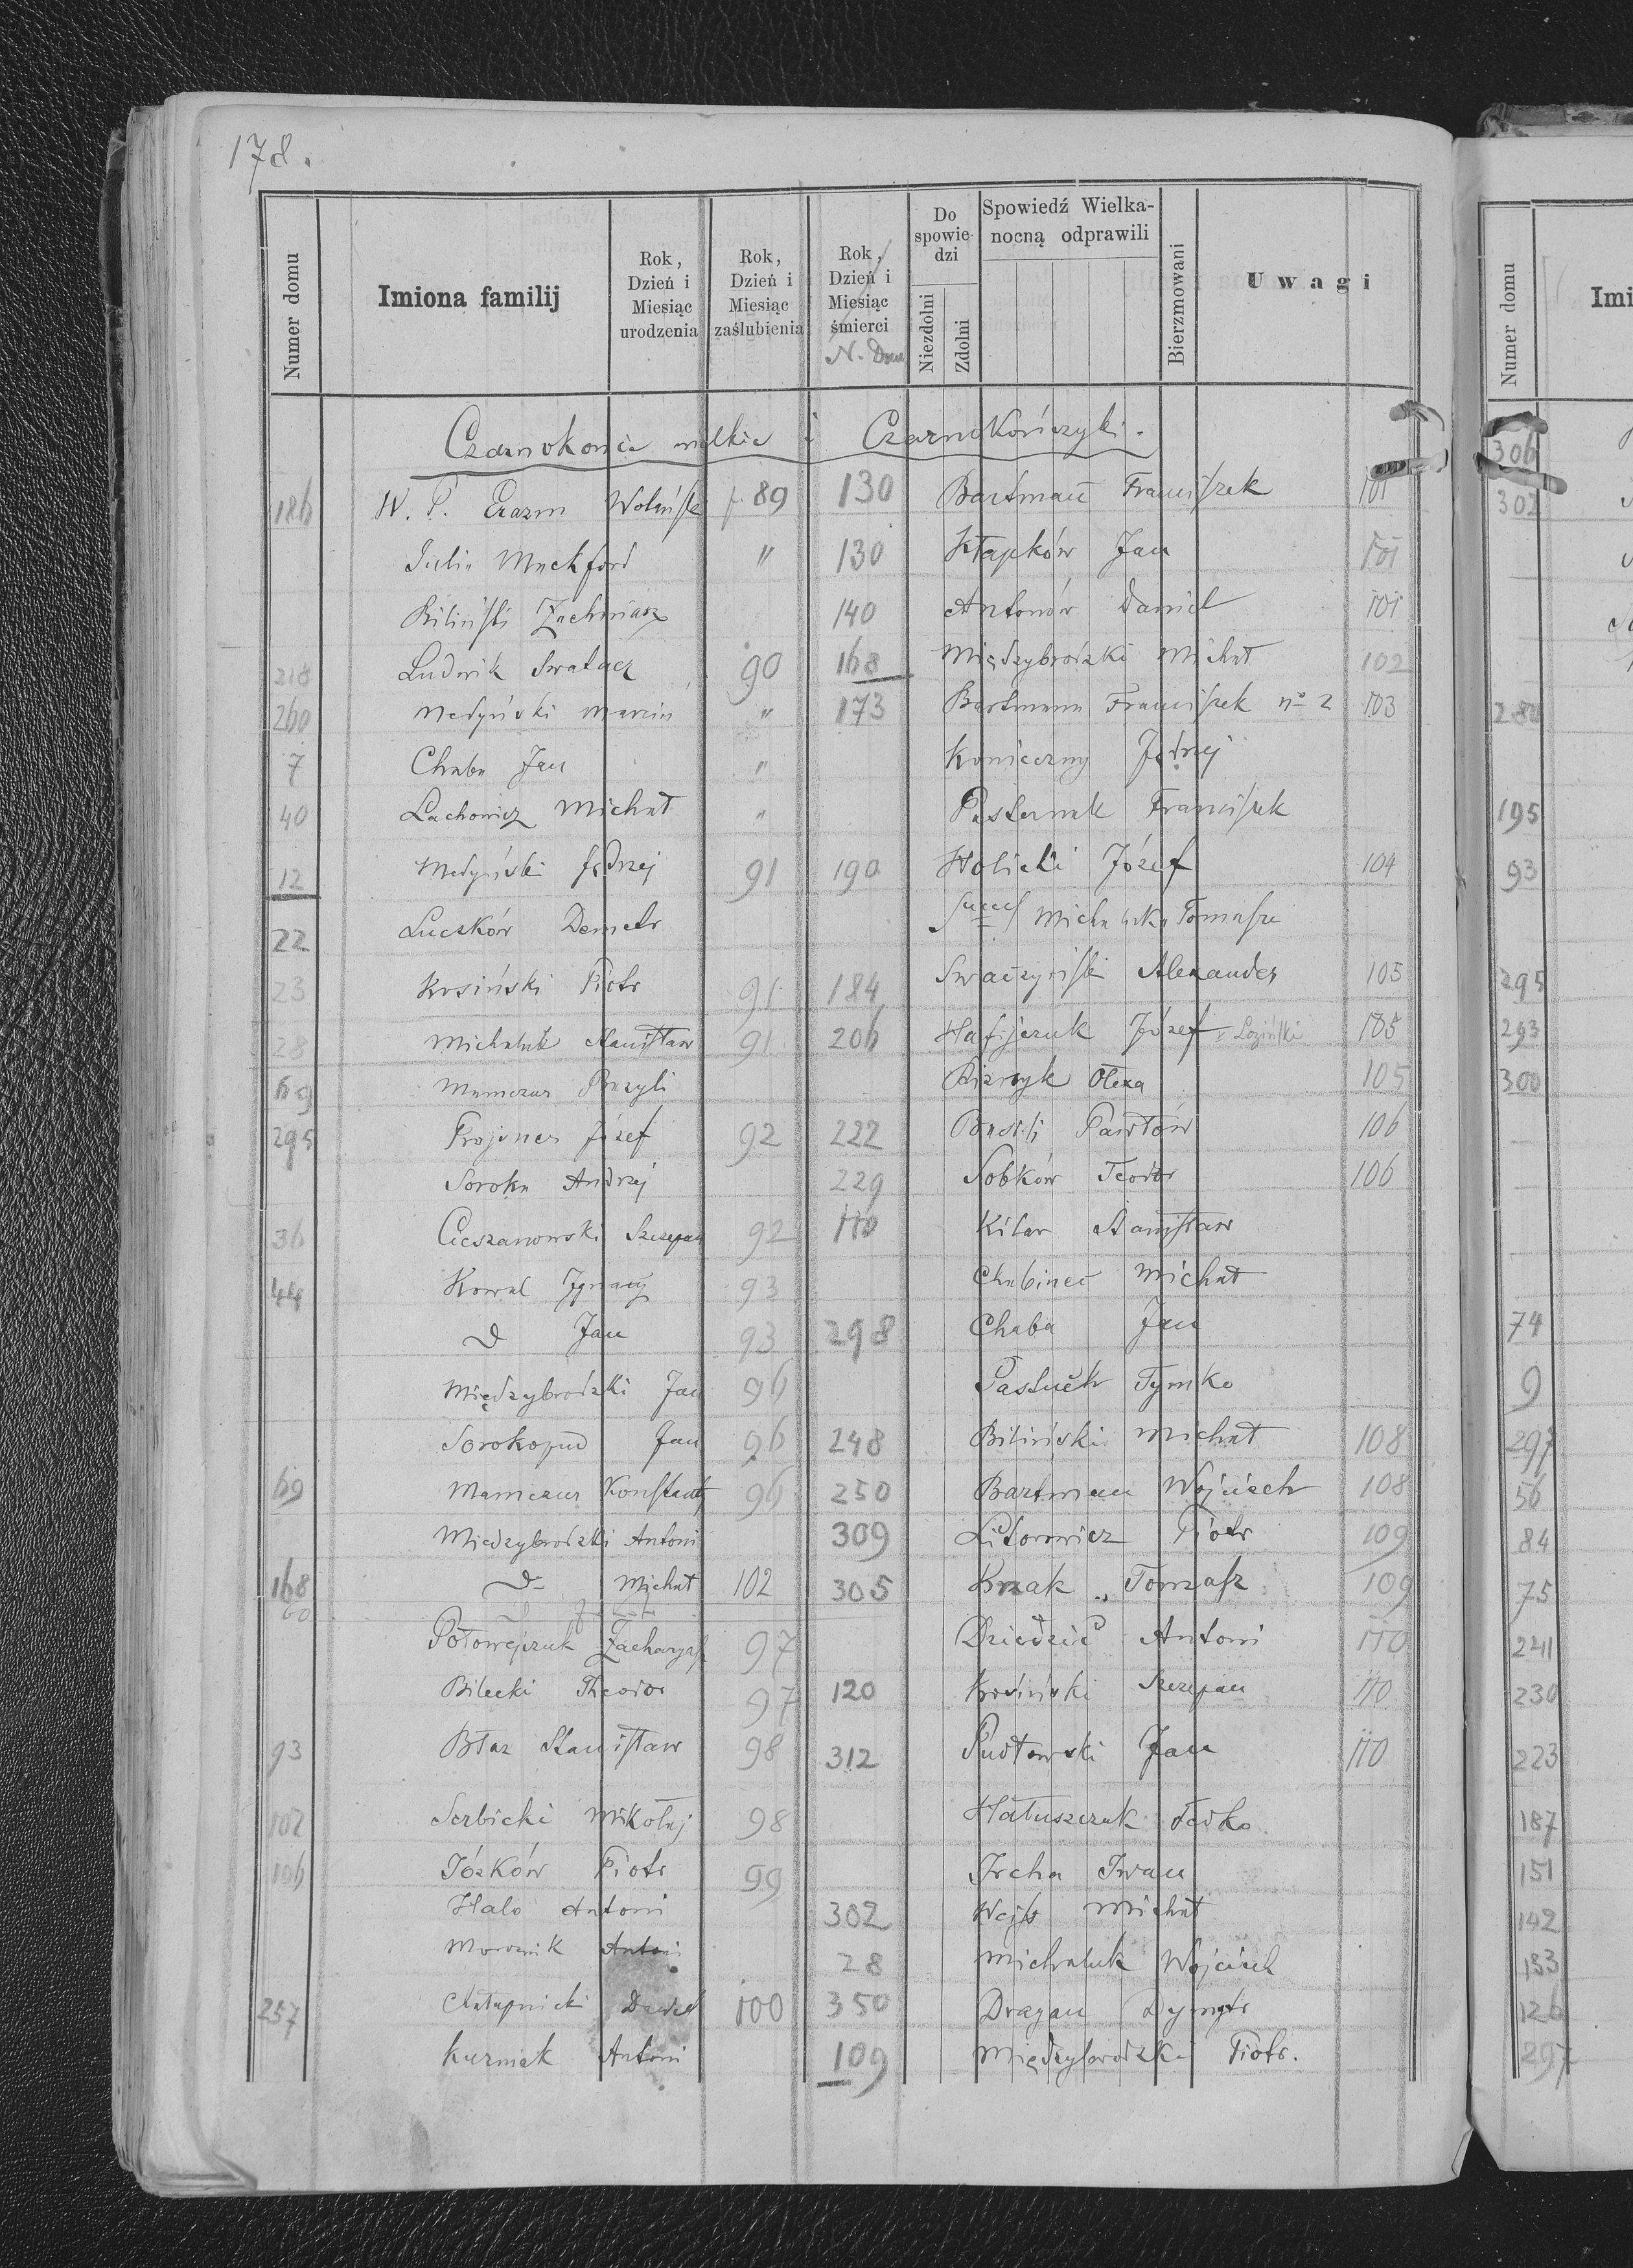 178.
Numer domu
Imiona familij
Rok, Dzień i Miesiąc urodzenia
Rok, Dzień i Miesiąc zaślubienia
Rok, Dzień i Miesiąc śmierci
N. Dom
Do spowiedzi
Niezdolni
Zdolni
Spowiedź Wielkanocną odprawili
Bierzmowani
Uwagi
Czarnokońce wielkie i Czarnokończyki.
186 W. P. Erazm Wolański p. 89 130 Bartman Franciszek 101
Julia " 130 Kłapków Jan 101
Biliński Zachariasz 140 Antonów Daniel 101
218 Ludwik 90 168 Międzybrodzki Michał 102
260 Medyński Marcin " 173 Bartmann Franciszek no 2 103
7 Chaba Jan " Konieczny Jędrzej
40 Lachowicz Michał " Pasternak Franciszek
12 Medyński Jędrzej 91 190 Holicki Józef 104
22 Luczków Demetr Tomasz
23 Kosiński Piotr 91 184 Alexander 105
28 Michaluk Stanisław 91 206 Hafijczuk Józef v Loziński 105
69 Mamczur Olexa 105
295 Projnes Józef 92 222 Pawłów 106
Soroka Andrzej 229 Sobków Teodor 106
36 Cieszanowski Szczepan 92 110 Kilar Stanisław
44 Kowal Ignacy 93 Chabinec Michał
D Jan 93 298 Chaba Jan
Międzybrodzki Jan 96 Pastuch Tymko
Sorokopud Jan 96 248 Biliński Michał 108
69 Mamczur Konstanty 96 250 Bartman Wojciech 108
Miedzybrodzki Antoni 309 Litorowicz Piotr 109
168 D- Michał 102 305 Kozak Tomasz 109
60 Połowejczuk Zacharyasz 97 Dziedzic Antoni 110
Bilecki Theodor 97 120 Kosiński Szczepan 110
93 Błaz Stanisław 98 312 Pudłowski Jan 110
102 Serbicki Mikołaj 98 Hałuszczak Fedko
106 Józków Piotr 99 Ircha Iwan
Halo Antoni 302 Michał
Antoni 28 Michaluk Wojciech
257 Chałapnicki Dawid 100 350 Dragan Dymytr
Kuzniak Antoni 109 Międzybrodzki Piotr.
Numer domu
Imi
306
302
195
93
295
293
300
74
9
297
56
84
75
241
230
223
187
151
142
153
126
297